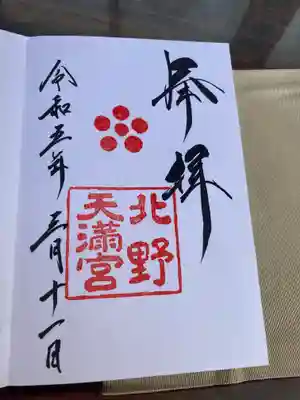 奉拝
北野
天満宮
令和五年 三月十一日